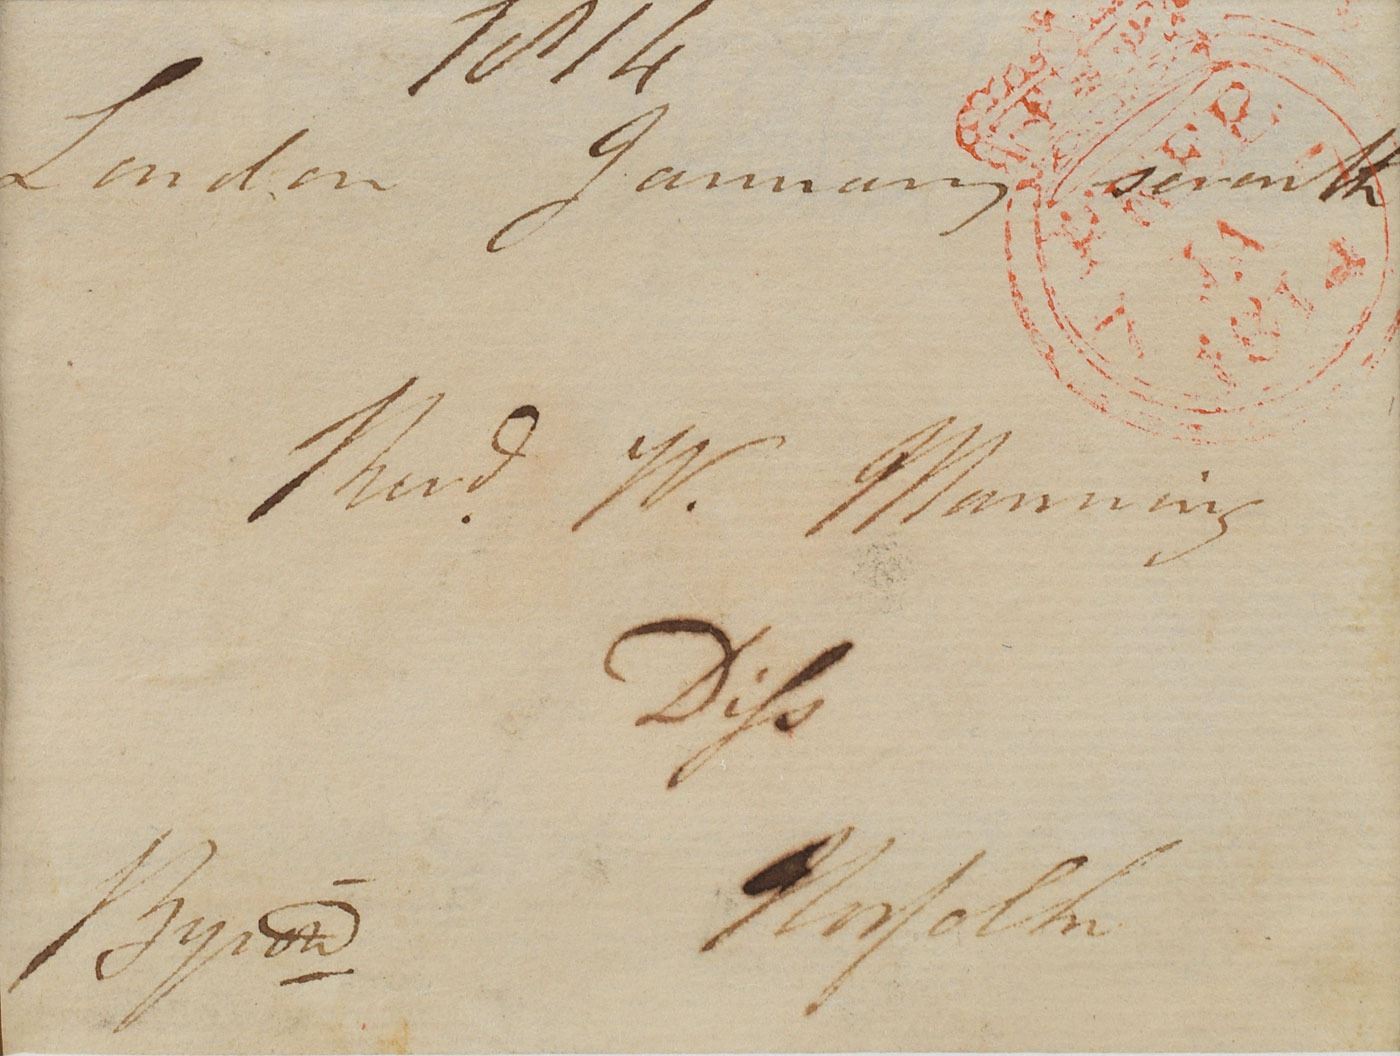 1814
London January seventh
Revd. W. Manning
Diſs
Norfolk
Byron
FREE
1814